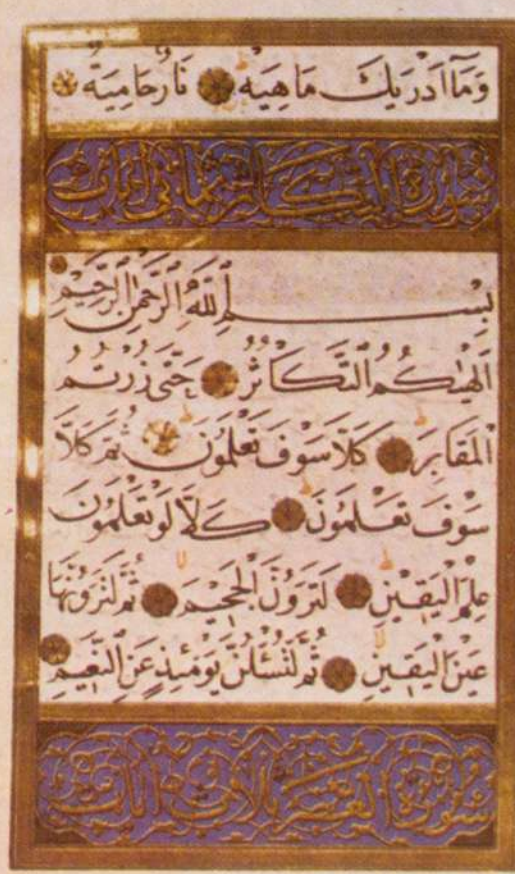 وَمَآ اَدْرٰيكَ مَاهِيَهْ نَارٌ حَامِيَةٌ
سورة التكاثر ثمانى ايات
بِسْمِ ٱللَّهِ ٱلرَّحْمٰنِ ٱلرَّحِيمِ
اَلْهٰيكُمُ ٱلتَّكَاثُرُ حَتّٰى زُرْتُمُ
ٱلْمَقَابِرَ كَلَّا سَوْفَ تَعْلَمُونَ ثُمَّ كَلَّا
سَوْفَ تَعْلَمُونَ كَلَّا لَوْ تَعْلَمُونَ
عِلْمَ ٱلْيَقِينِ لَتَرَوُنَّ ٱلْجَحِيمَ ثُمَّ لَتَرَوُنَّهَا
عَيْنَ ٱلْيَقِينِ ثُمَّ لَتُسْئَلُنَّ يَوْمَئِذٍ عَنِ ٱلنَّعِيمِ
سورة العصر ثلاث ايات